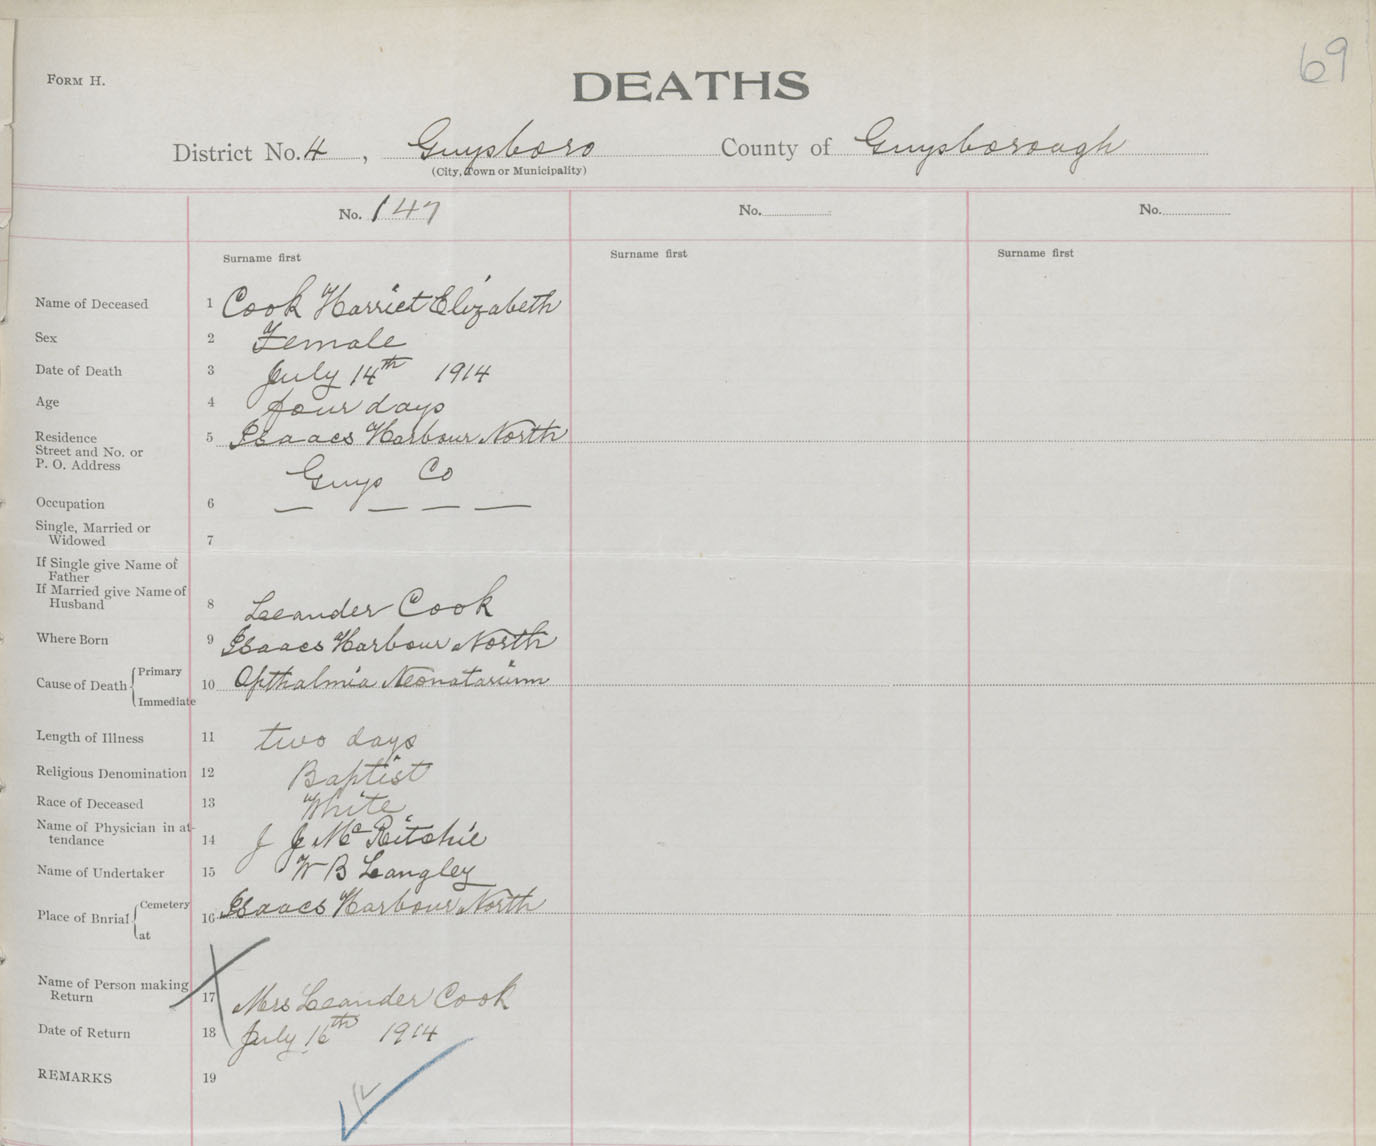 69
FORM H.
DEATHS
District No. 4, Guysboro County of Guysborough
(City, Town or Municipality)
No. 147 No. No.
Surname first Surname first Surname first
Name of Deceased 1 Cook Harriet Elizabeth
Sex 2 Female
Date of Death 3 July 14th 1914
Age 4 four days
Residence 5 Isaacs Harbour North
Street and No. or
P. O. Address Guys Co
Occupation 6 — — — —
Single, Married or
Widowed 7
If Single give Name of
Father
If Married give Name of
Husband 8 Leander Cook
Where Born 9 Isaacs Harbour North
Cause of Death { Primary 10 Opthalmia Neonatarium
Immediate
Length of Illness 11 two days
Religious Denomination 12 Baptist
Race of Deceased 13 White
Name of Physician in at-
tendance 14 J J McRitchie
Name of Undertaker 15 W B Langley
Place of Bnrial { Cemetery 16 Isaacs Harbour North
at
Name of Person making
Return 17 Mrs Leander Cook
Date of Return 18 July 16th 1914
REMARKS 19